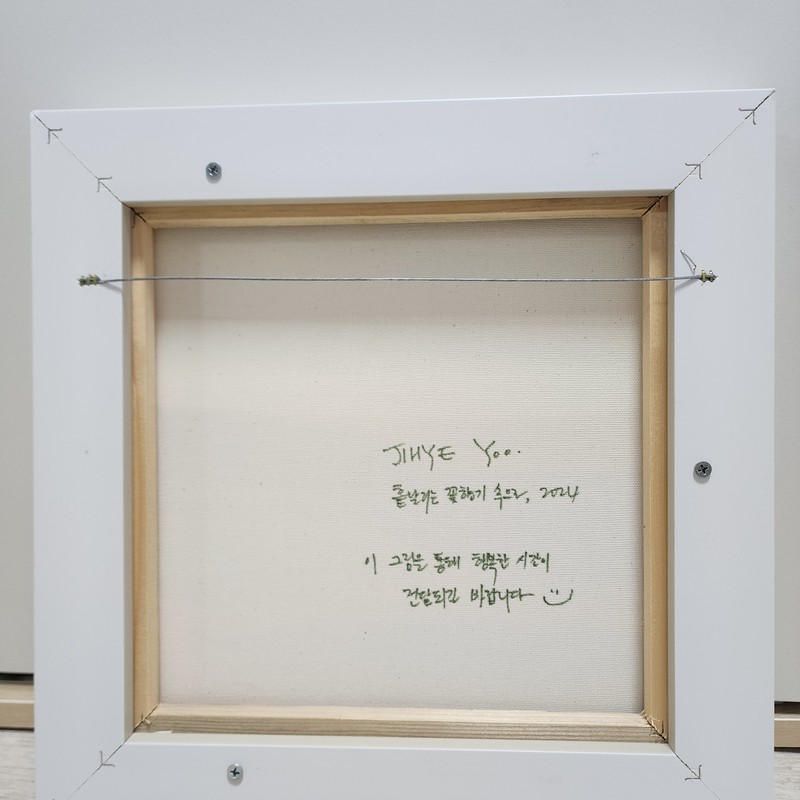 JIHYE Yoo.
흩날리는 꽃향기 속으로, 2024
이 그림을 통해 행복한 시간이
전달되길 바랍니다